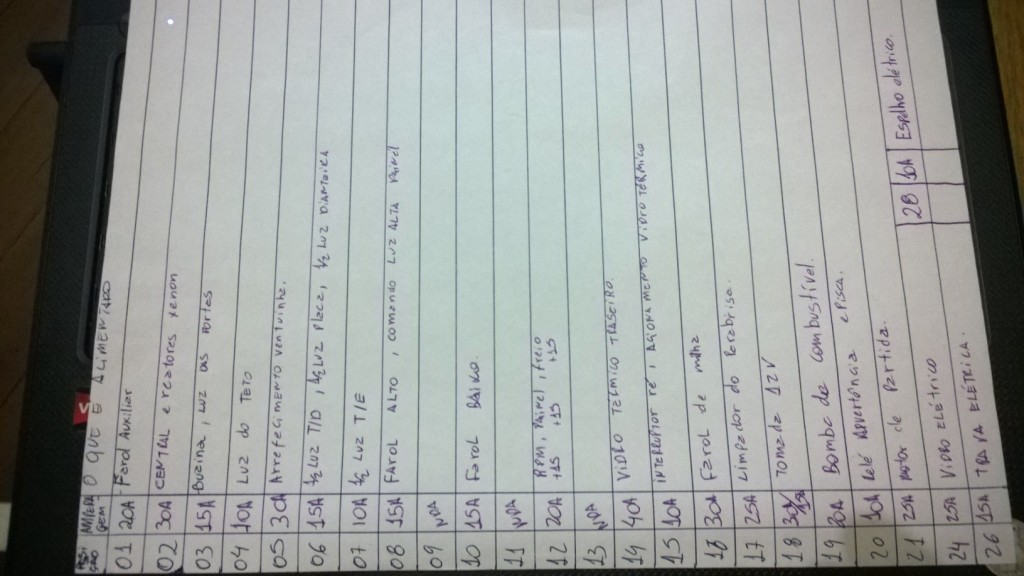 POSI ÇÃO AMPERA gem O QUE É ALIMENTADO
01 20A Farol Auxiliar
02 30A CENTRAL e reatores xenon
03 15A Buzina, LUZ das Portas
04 10A LUZ do TETO
05 30A Arrefecimento ventoinha.
06 15A 1/2 LUZ T/D, 1/2 LUZ PLACA, 1/2 LUZ DIANTEIRA
07 10A 1/2 LUZ T/E
08 15A FAROL ALTO, comando LUZ ALTA PAINEL
09 NDA
10 15A Farol BAIXO.
11 NDA
12 20A RPM, PAINEL, freio
+15 +15 +15
13 NDA
14 40A VIDRO TERMICO TRASEIRO.
15 10A INTERRUPTOR ré, ACIONAMENTO VIDRO TERMICO
16 30A Farol de milha
17 25A Limpador do Parabrisa.
18 30A Tomada 12V
19 20A Bomba de combustível.
20 10A Relé Advertência e Pisca.
21 25A Motor de Partida.
24 25A VIDRO ELÉTRICO
26 15A TRAVA ELÉTRICA.
28 10A Espelho elétrico.